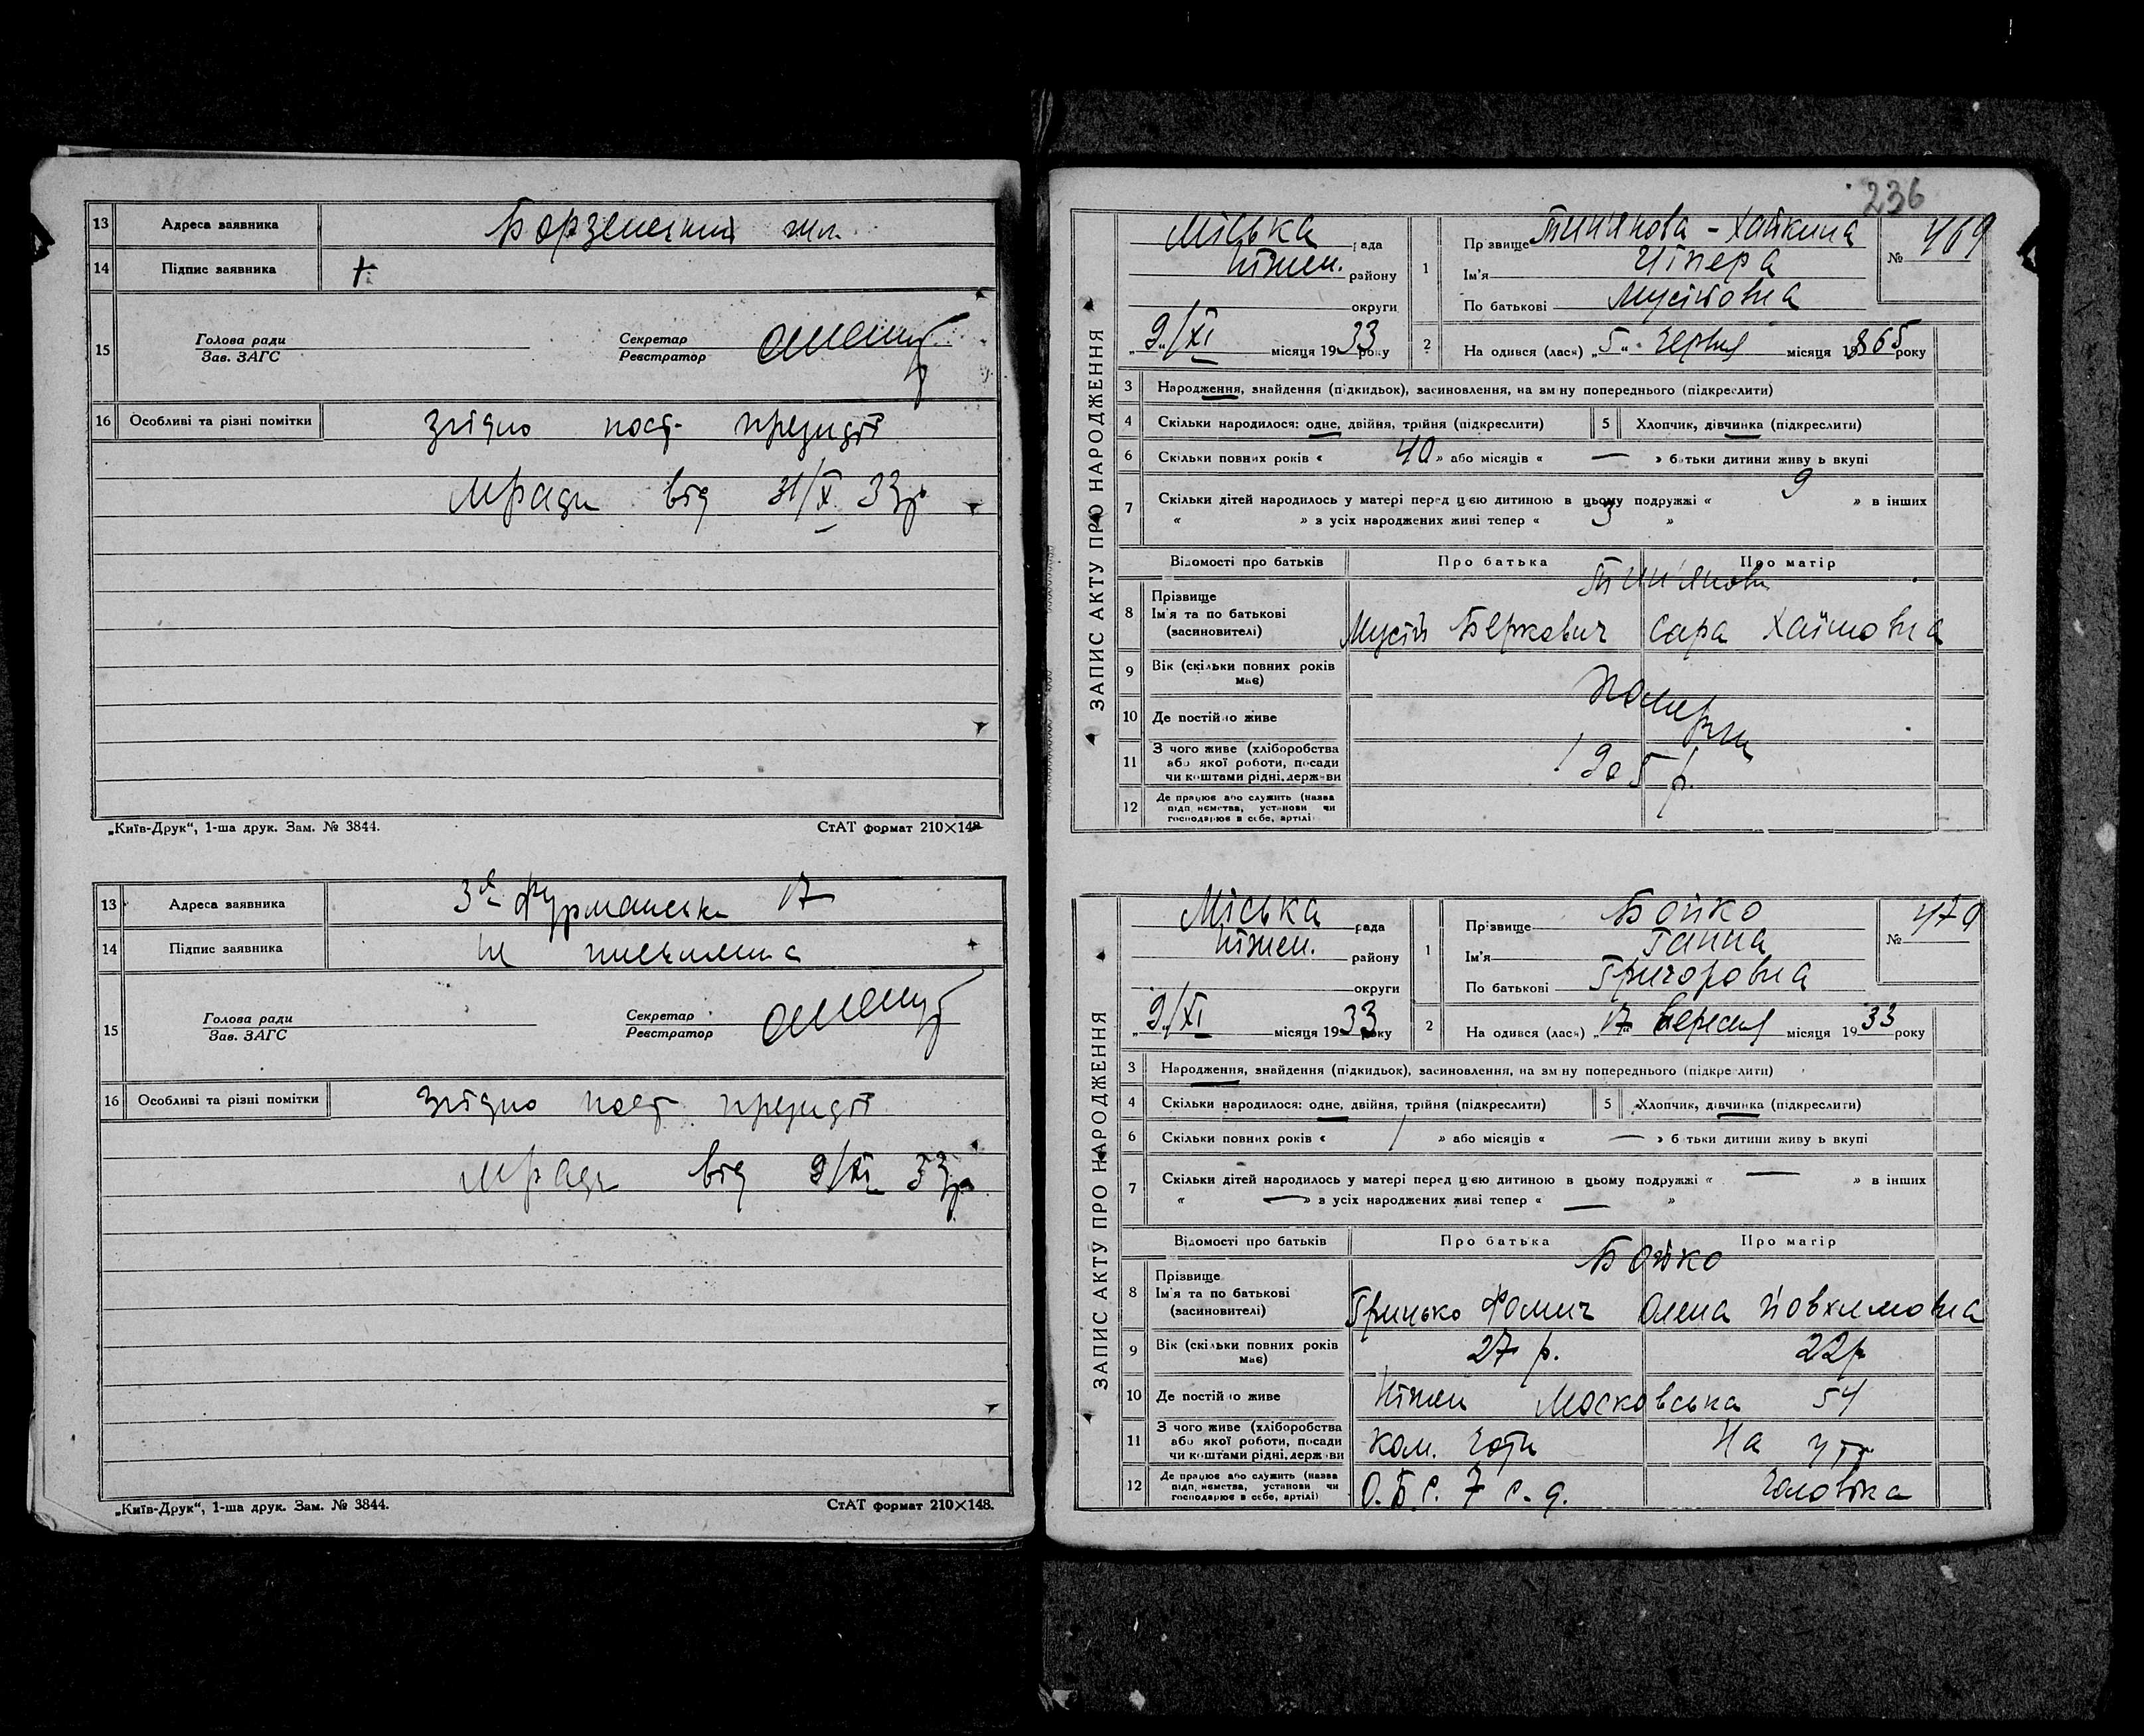 13 Адреса заявника Борзенський шл.
14 Підпис заявника +
15 Голова ради Секретар
Зав. ЗАГС Реєстратор
16 Особливі та різні помітки згідно пост. президії
мради від 31/X 33р
„Київ-Друк“, 1-ша друк. Зам. № 3844. СтАТ формат 210×148
13 Адреса заявника 17
14 Підпис заявника не письменна
15 Голова ради Секретар
Зав. ЗАГС Реєстратор
16 Особливі та різні помітки згідно пост президії
мради від 9/XI 33р
„Київ-Друк“, 1-ша друк. Зам. № 3844. СтАТ формат 210×148.
236
ЗАПИС АКТУ ПРО НАРОДЖЕННЯ
Міська рада
Ніжен. району
округи
„9“/XI місяця 1933 року
1 Прізвище Тип'янова-Хайкина
Ім'я Ціпера
По батькові Мусіївна
№ 469
2 На одився (лась) „5“ червня місяця 1865 року
3 Народження, знайдення (підкидьок), засиновлення, на зм ну попереднього (підкреслити)
4 Скільки народилося: одне, двійня, трійня (підкреслити) 5 Хлопчик, дівчинка (підкреслити)
6 Скільки повних років « 40 » або місяців « — » батьки дитини живуть вкупі
7 Скільки дітей народилось у матері перед цією дитиною в цьому подружжі « 9 » в інших
« » з усіх народжених живі тепер « 3 »
Відомості про батьків Про батька Про матір
Тип'янови
8 Прізвище
Ім'я та по батькові Мусій Беркович Сара Хаїмовна
(засиновителі)
9 Вік (скільки повних років має)
померли
10 Де постійно живе
11 З чого живе (хліборобства
або якої роботи, посади 1905 р.
чи коштами рідні, держави
12 Де працює або служить (назва
підприємства, установи чи
господарює в себе, артілі)
ЗАПИС АКТУ ПРО НАРОДЖЕННЯ
Міська рада
Ніжен. району
округи
„9“/XI місяця 1933 року
1 Прізвище Бойко
Ім'я Ганна
По батькові Григоровна
№ 470
2 На одився (лась) „17 вересня місяця 1933 року
3 Народження, знайдення (підкидьок), засиновлення, на зм ну попереднього (підкреслити)
4 Скільки народилося: одне, двійня, трійня (підкреслити) 5 Хлопчик, дівчинка (підкреслити)
6 Скільки повних років « 1 » або місяців « — » батьки дитини живуть вкупі
7 Скільки дітей народилось у матері перед цією дитиною в цьому подружжі « — » в інших
« — » з усіх народжених живі тепер « — »
Відомості про батьків Про батька Про матір
Бойко
8 Прізвище
Ім'я та по батькові Грицько Фомич Олена Йовхимовна
(засиновителі)
9 Вік (скільки повних років має) 27 р. 22р
10 Де постійно живе Ніжен Московська 54
11 З чого живе (хліборобства
або якої роботи, посади Ком. чоти На утр
чи коштами рідні, держави
12 Де працює або служить (назва
підприємства, установи чи О.Б.С. 7 с. д. чоловіка
господарює в себе, артілі)